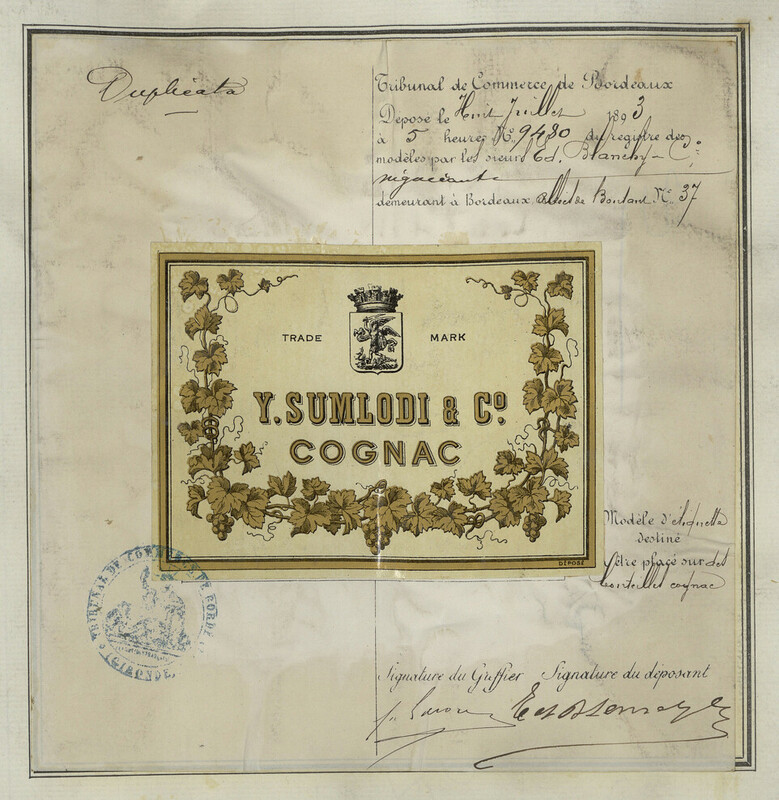 Duplicata
Tribunal de Commerce de Bordeaux
Déposé le Huit Juillet 1893
à 5 heures No. 9480 du registre des
modèles par les sieurs Ed. Blanchy & Co.
négociants
demeurant à Bordeaux No. 37
TRADE MARK
Y. SUMLODI & Co.
COGNAC
DÉPOSÉ
Modèle d'étiquette
destiné
être placé sur des
bouteilles cognac
TRIBUNAL DE COMMERCE DE BORDEAUX
(GIRONDE)
Signature du Greffier Signature du déposant